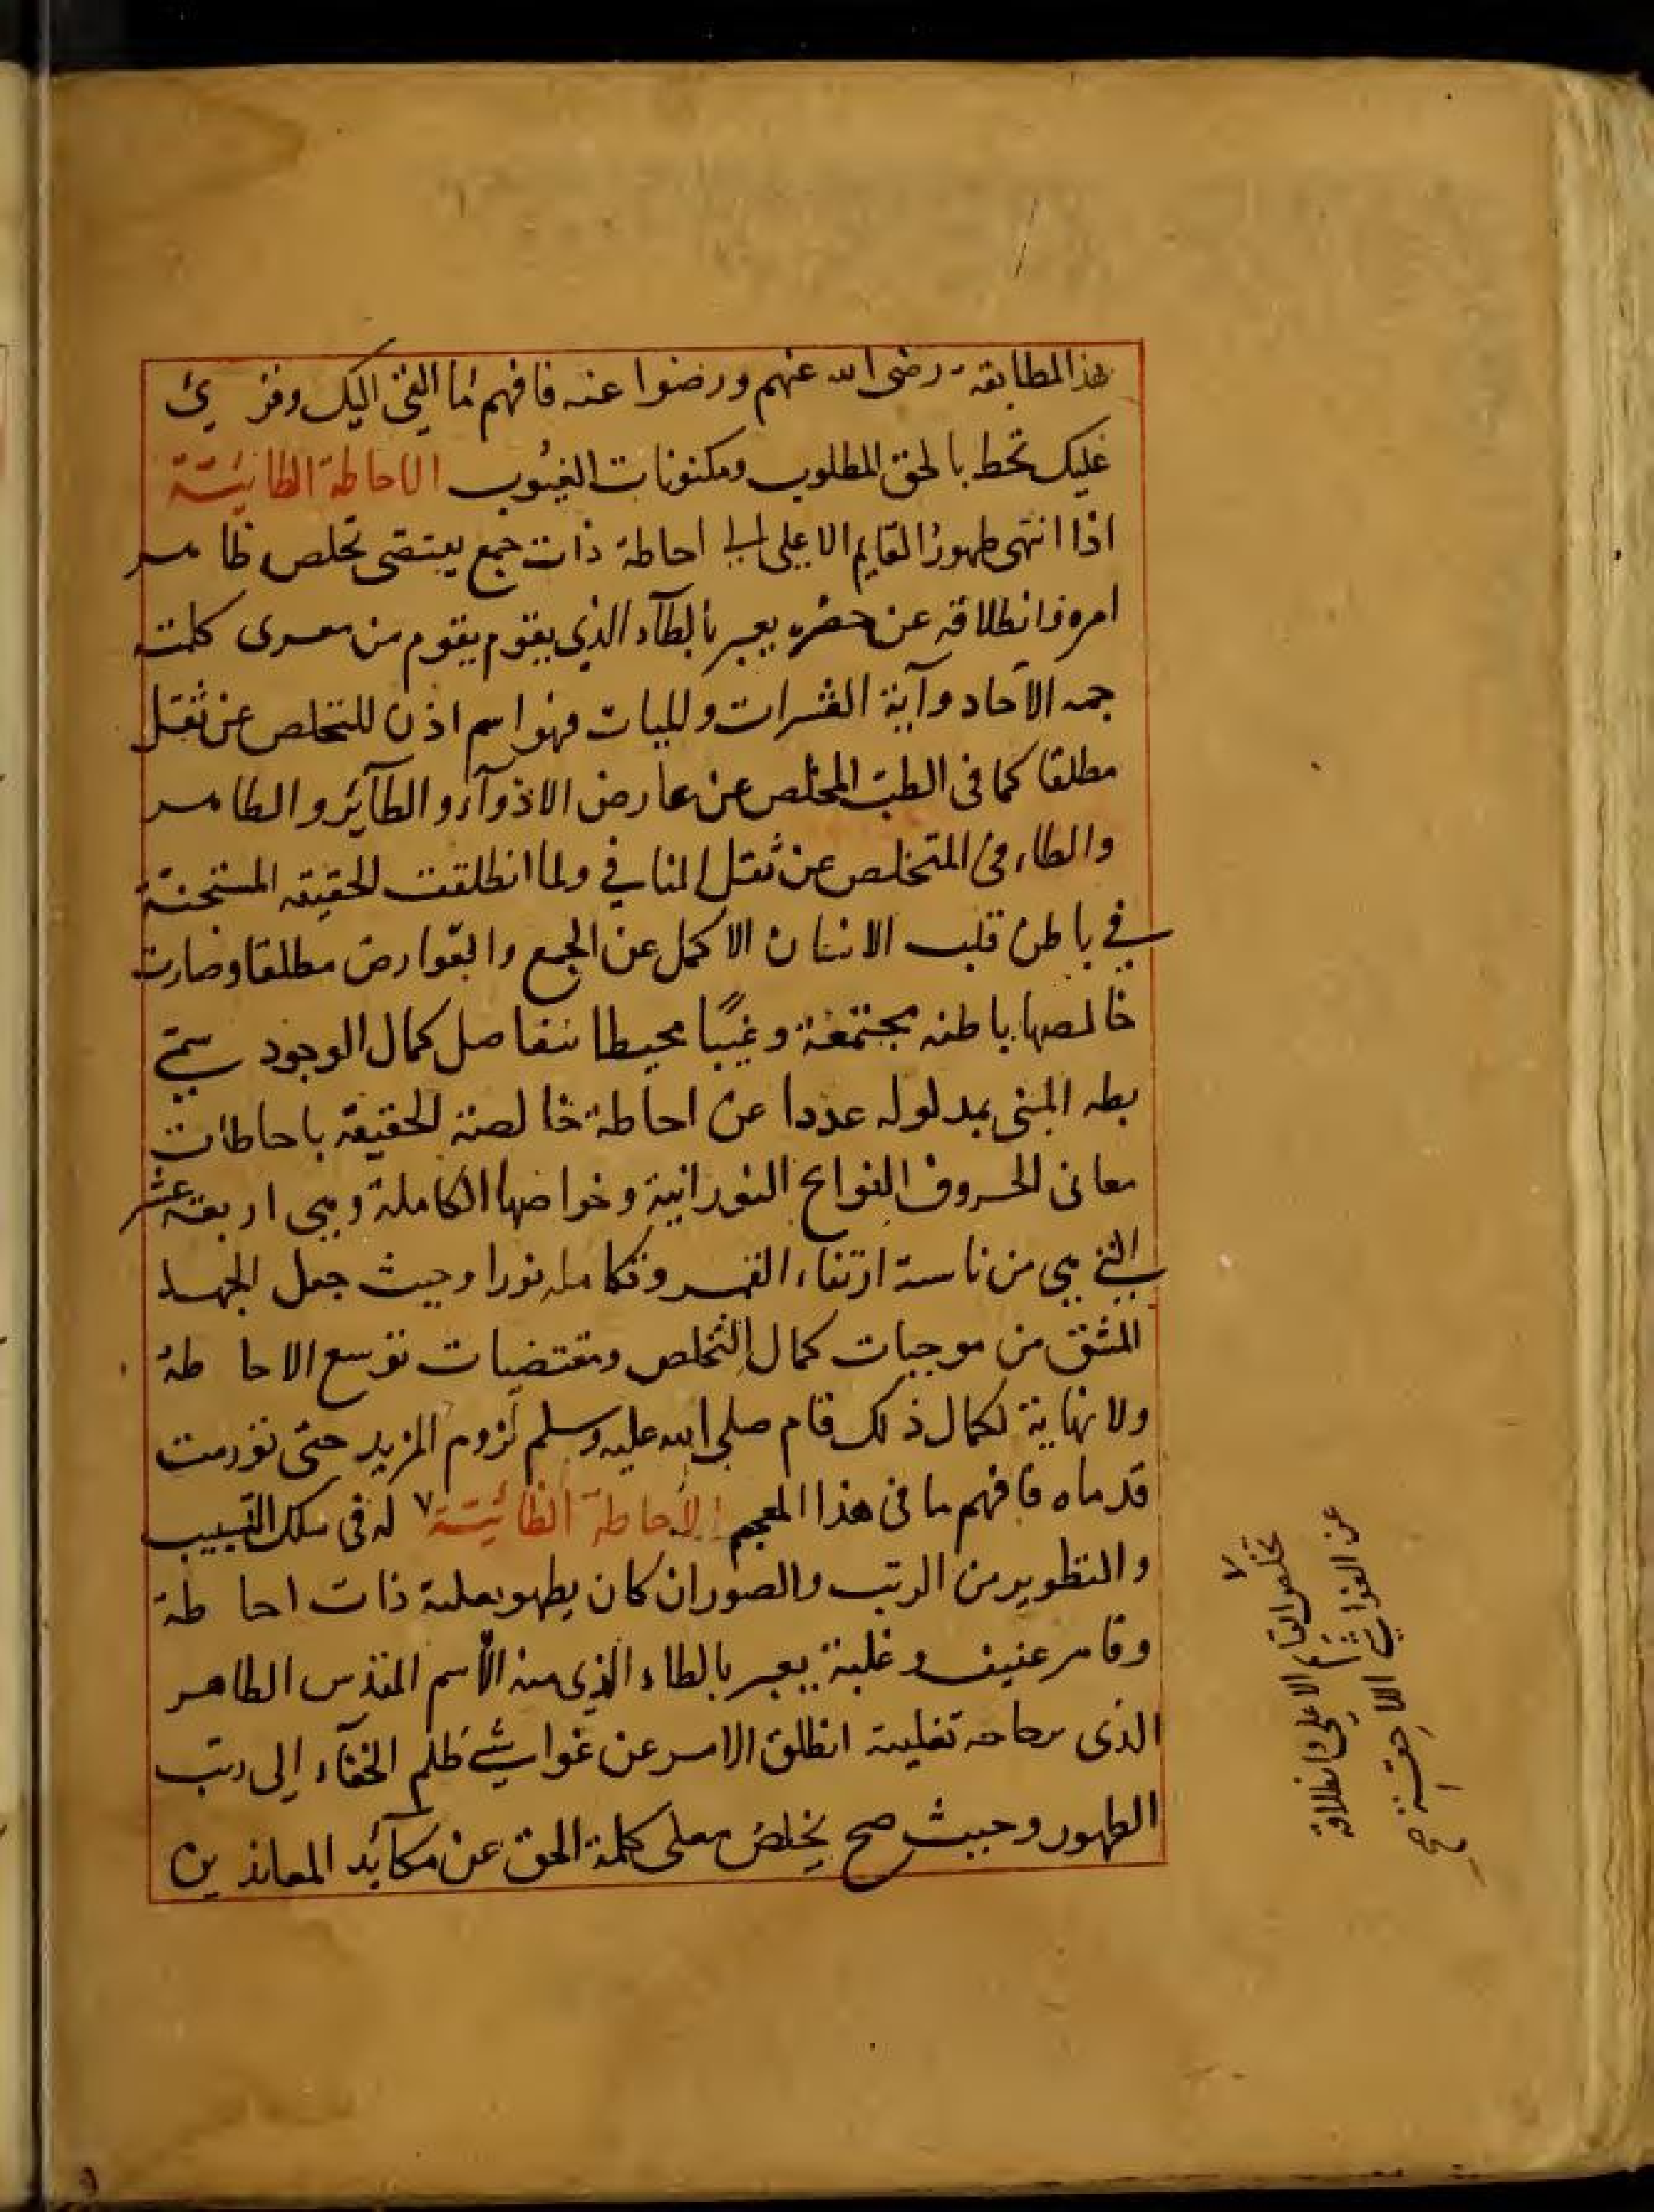 هذا المطابقة رضى الله عنهم ورضوا عنه فافهم ما القى اليك وقرئ
عليك تحط بالحق المطلوب ومكنونات الغيوب الاحاطة الطائية
اذا انتهى ظهور القايم الاعلى الى احاطة ذات جمع يقتضى تخلص ظاهر
امره وانطلاقه عن حصره يعبر بالطآء الذي يقوم يقوم من كلمته
الآحاد وآية العشرات والميات فهو اسم اذن للتخلص عن ثقل
مطلقا كما فى الطب المخلص عن عارض الادوآء والطآئر والطاهر
والطاء فى المتخلص عن ثقل المنافي ولما انطلقت الحقيقه المستجنة
في باطن قلب الانسان الاكمل عن الجمع والعوارض مطلقا وصارت
خالصها باطنه مجتمعة وغيبًا محيطا بتفاصل كمال الوجود سمى
بطه المبنى بمدلوله عددا عن احاطة خالصة الحقيقة باحاطات
معانى الحروف الفواتح النورانية وخواصها الكاملة وهى اربعة عشر
التي هى من ارتقاء القمر وتكامله نورا وحيث جعل الجهد
المشق من موجبات كمال التخلص ومقتضيات توسع الاحا طة
ولا نهاية لكمال ذلك قام صلى الله عليه وسلم لزوم المزيد حتى تورمت
قدماه فافهم ما فى هذا المعجم الاحاطة الظائية له فى سلك التسبيب
والتطوير من الرتب والصور ان كان بعلية ذات احا طة
وقاهر عنيف وغلبة يعبر بالظاء الذي منه الأسم المقدس الظاهر
الذى تغلبه انطلق الامر عن غواشي ظلم الخفآء إلى رتب
الظهور وحيث صح يخلص معلى كلمة الحق عن مكآئد المعاندين
القايم الاعلى وانطلاقه
عن الغواشي اللاحقة